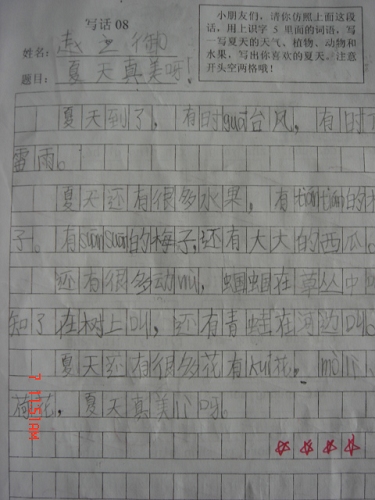 写话 08
姓名：赵
题目：夏天真美呀！
小朋友们，请你仿照上面这段
话，用上识字 5 里面的词语，写
一写夏天的天气、植物、动物和
水果，写出你喜欢的夏天。注意
开头空两格哦！
夏天到了，有时guā台风，有时下
雷雨。
夏天还有很多水果，有tiántián的
子。有suānsuān的梅子，还有大大的西瓜。
还有很多动wù，蝈蝈在草丛中
知了在树上叫，还有青蛙在河边叫。
夏天还有很多花有kuí花，mòlì
荷花，夏天真美
呀。